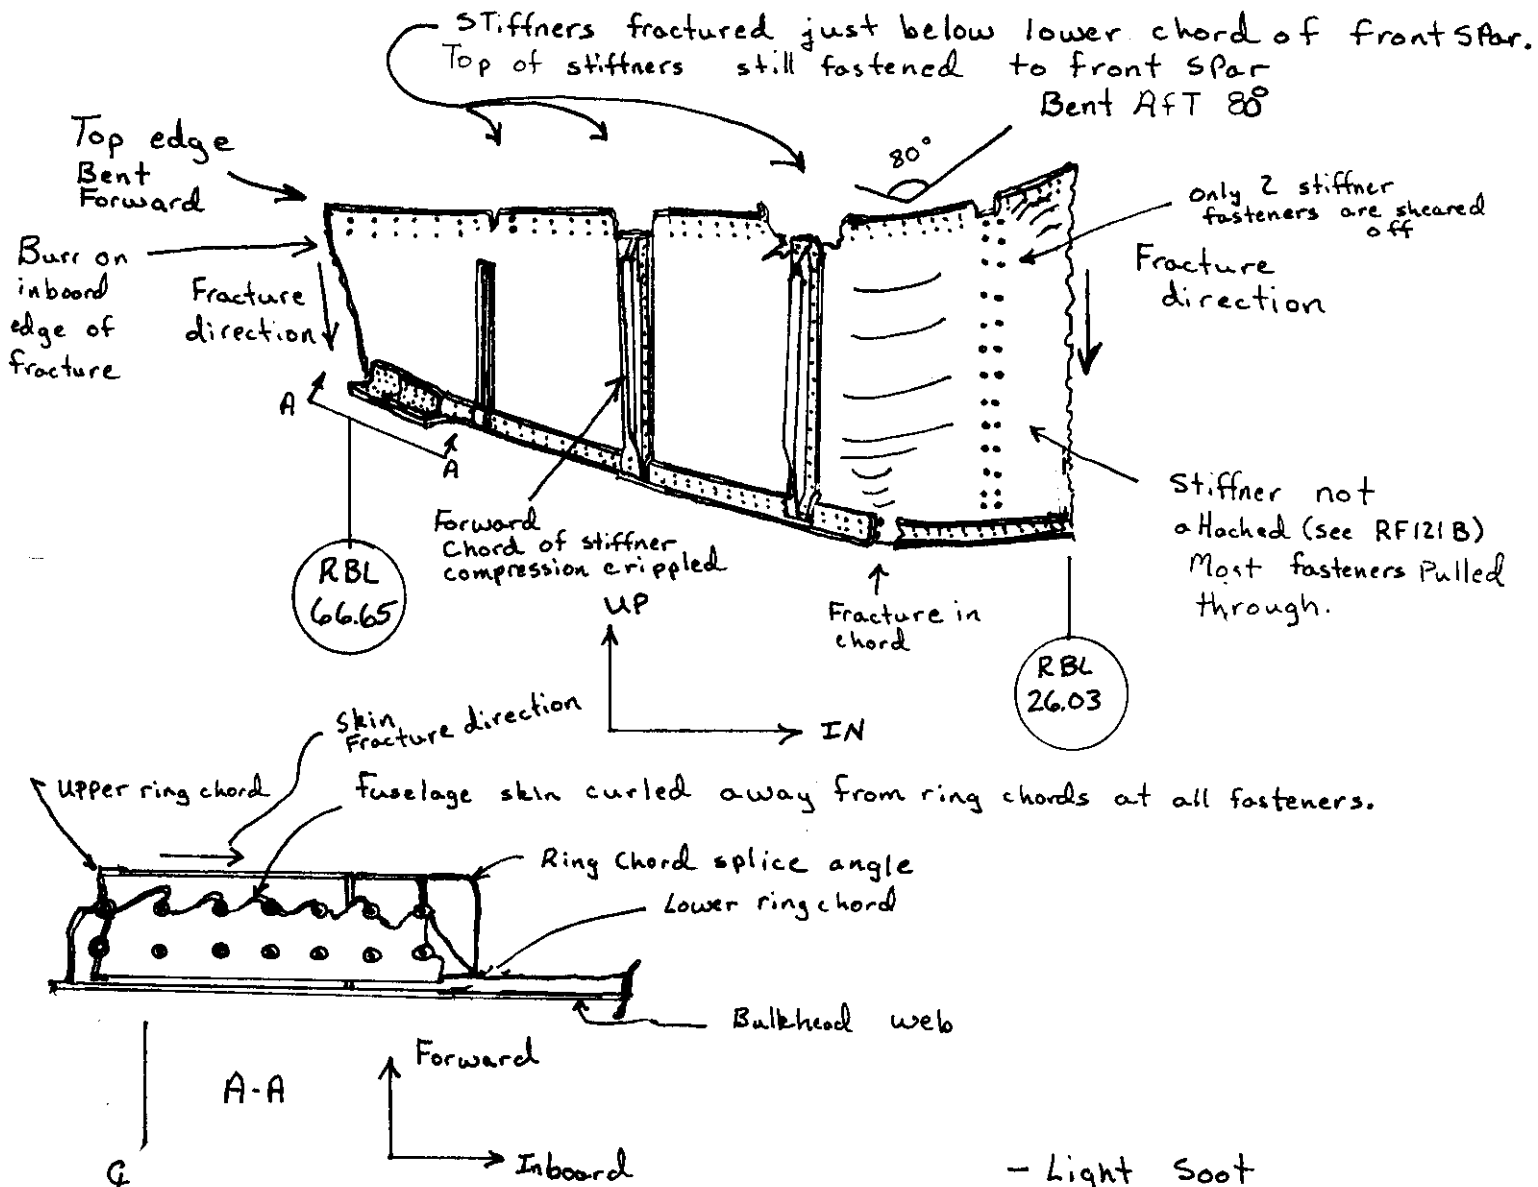 STiffners fractured just below lower chord of front SPar.
Top of stiffners still fastened to front SPar
Bent AfT 80°
80°
Top edge
Bent
Forward
Only 2 stiffner
fasteners are sheared
off
Burr on
inboard
edge of
fracture
Fracture
direction
Fracture
direction
A
A
Forward
Chord of stiffner
compression crippled
Stiffner not
attached (see RF121B)
Most fasteners Pulled
through.
RBL
66.65
UP
IN
Fracture in
chord
RBL
26.03
Skin
Fracture direction
Upper ring chord
Fuselage skin curled away from ring chords at all fasteners.
Ring Chord splice angle
Lower ring chord
Bulkhead web
Forward
A-A
Inboard
℄
- Light Soot